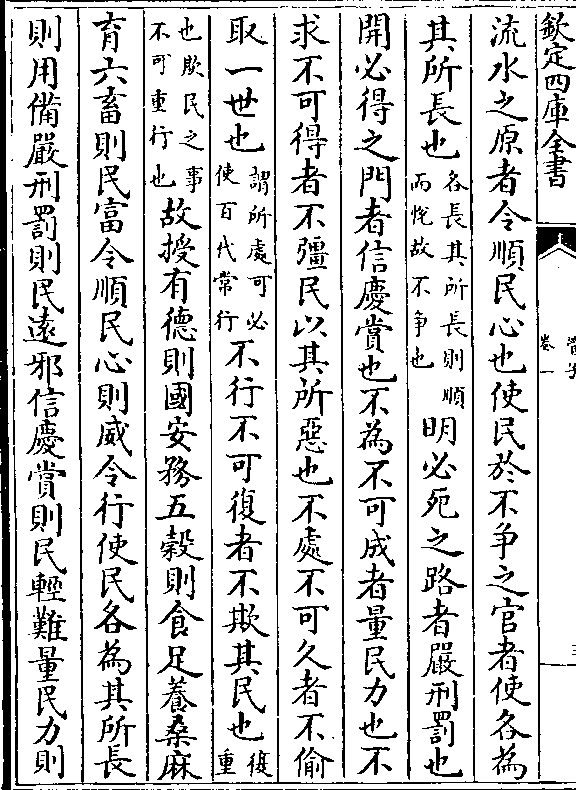 欽定四庫全書
管子
卷一
三
流水之原者令順民心也使民於不争之官者使各為
其所長也各長其所長則順而悅故不争也明必死之路者嚴刑罰也
開必得之門者信慶賞也不為不可成者量民力也不
求不可得者不彊民以其所惡也不處不可久者不偷
取一世也謂所處可必使百代常行不行不可復者不欺其民也復重
也欺民之事不可重行也故授有德則國安務五穀則食足養桑麻
育六畜則民富令順民心則威令行使民各為其所長
則用備嚴刑罰則民遠邪信慶賞則民輕難量民力則